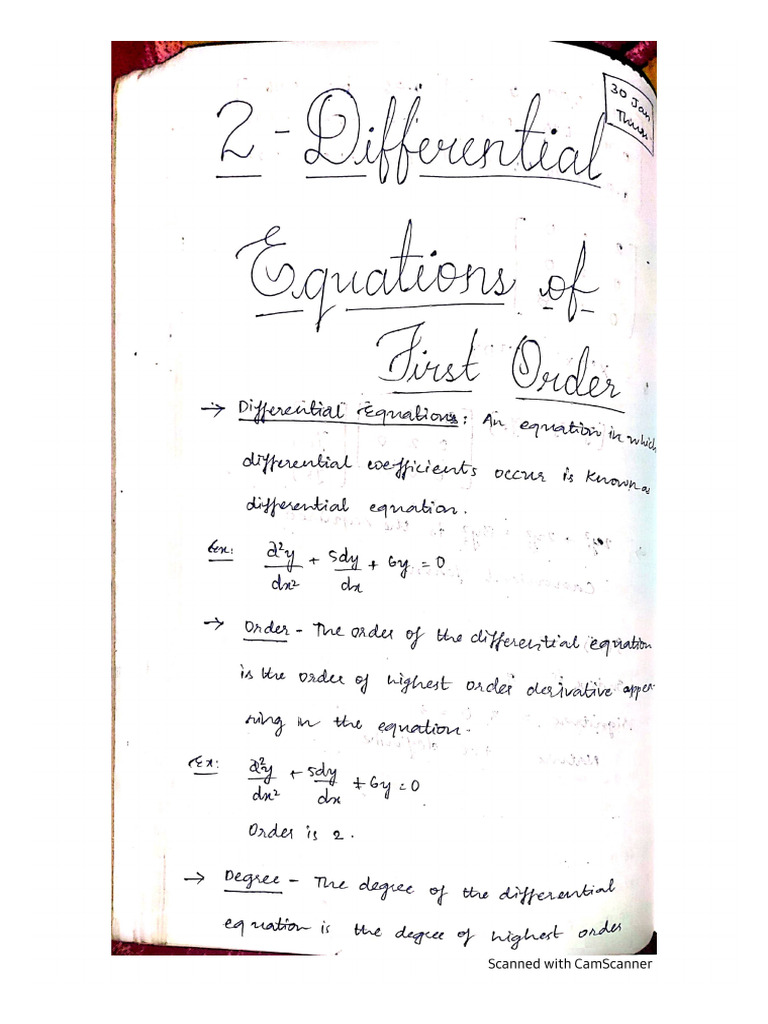 30 Jan
Thurs
2 - Differential
Equations of
First Order
→ Differential Equations: An equation in which
differential coefficients occur is known as
differential equation.
Ex: d²y/dx² + 5dy/dx + 6y = 0
→ Order - The order of the differential equation
is the order of highest order derivative appea-
ring in the equation.
Ex: d²y/dx² + 5dy/dx + 6y = 0
Order is 2.
→ Degree - The degree of the differential
equation is the degree of highest order
Scanned with CamScanner